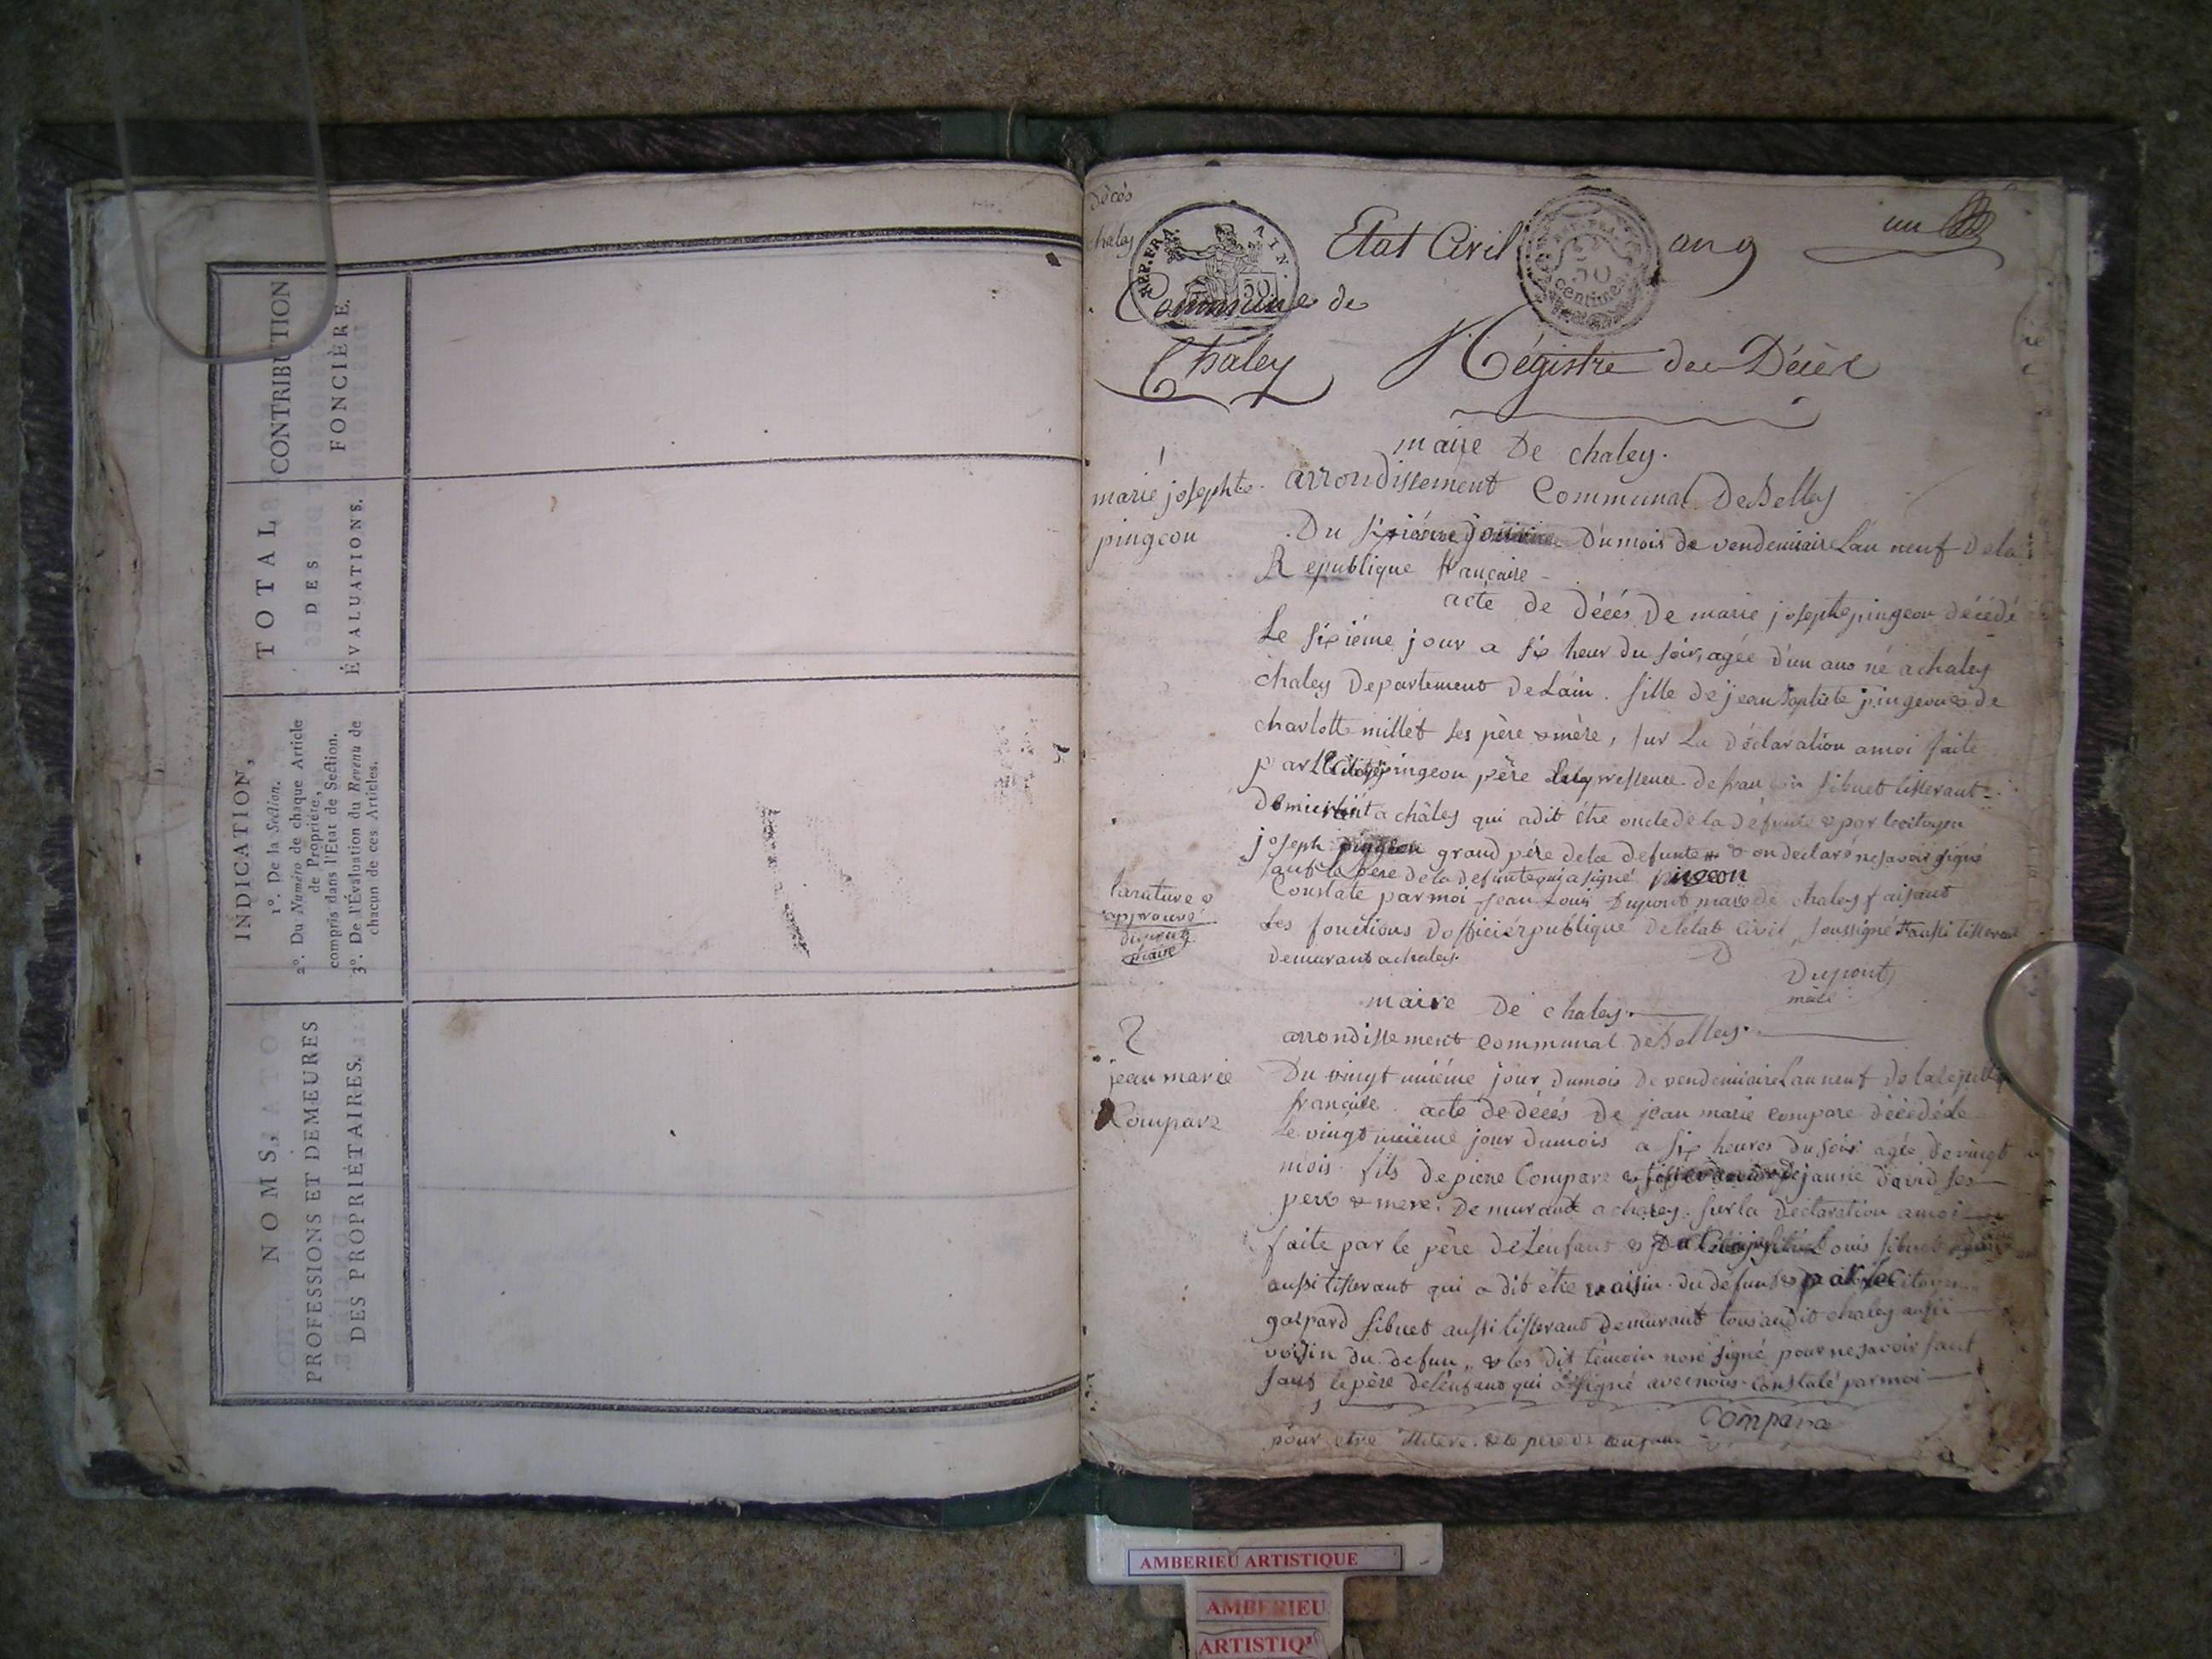 NOMS,
PROFESSIONS ET DEMEURES
DES PROPRIÉTAIRES.
INDICATION,
1°. De la Section.
2°. Du Numéro de chaque Article
de Propriété,
compris dans l'État de Section.
3°. De l'Évaluation du Revenu de
chacun de ces Articles.
TOTAL
DES
ÉVALUATIONS.
CONTRIBUTION
FONCIÈRE.
Décès
chaley
REP. FRA.
AIN.
50
Etat Civil
50
centimes
an 9
un
Commune de
Chaley
Régistre des Décès
maire De chaley.
arrondissement Communal DeBelley
1
marie josephte
pingeon
Du sixiéme dumois de vendemiaire L'an neuf dela
Republique française
acte de décés De marie josephte pingeon décédé
Le sixiéme jour a six heur du soir, agée d'un ans né a chaley
chaley Departement DeLain. fille de jean baptiste pingeon & de
charlotte millet ses père & mère, sur La déclaration amoi faite
par pingeon père pressence de sibuet tisserant
a châley qui adit être oncle de la défunte & par le citoyen
joseph pingeon grand pére dela defunte & on declaré ne savoir signé
sauf le pere de la defunte qui a signé pingeon
Constaté par moi jean Louis Dupont maire de chaley faisant
Les fonctions D'officiér publique De l'état Civil, soussigné aussi tisserant
demurant a chaley.
la rature &
approuvé
dupont
maire
Dupont
maire
maire De chaley.
arrondissement communal deBelley.
2
jean marie
Compare
Du vingt uniéme jour dumois De vendemiaire L'an neuf de la
française. acte de décés De jean marie compare décédé Le
Le vingt uniéme jour dumois a six heures du soir agée de vingt
mois. fils de piere Compare & jeanne david ses
pere & mere. Demurant a chaley. sur la Déclaration amoi
faite par le père de L'enfant & Louis sibuet
aussi tisserant qui a dit etre voisin du défunt & par le citoyen
gaspard sibuet aussi tisserant demurant tous audit chaley aussi
voisin du defun, & les dit témoin nons signé pour ne savoir
sauf le père de l'enfant qui a signé avec nous. Constaté par moi
Compare
pour etre & le pere de
AMBERIEU ARTISTIQUE
AMBERIEU
ARTISTIQU